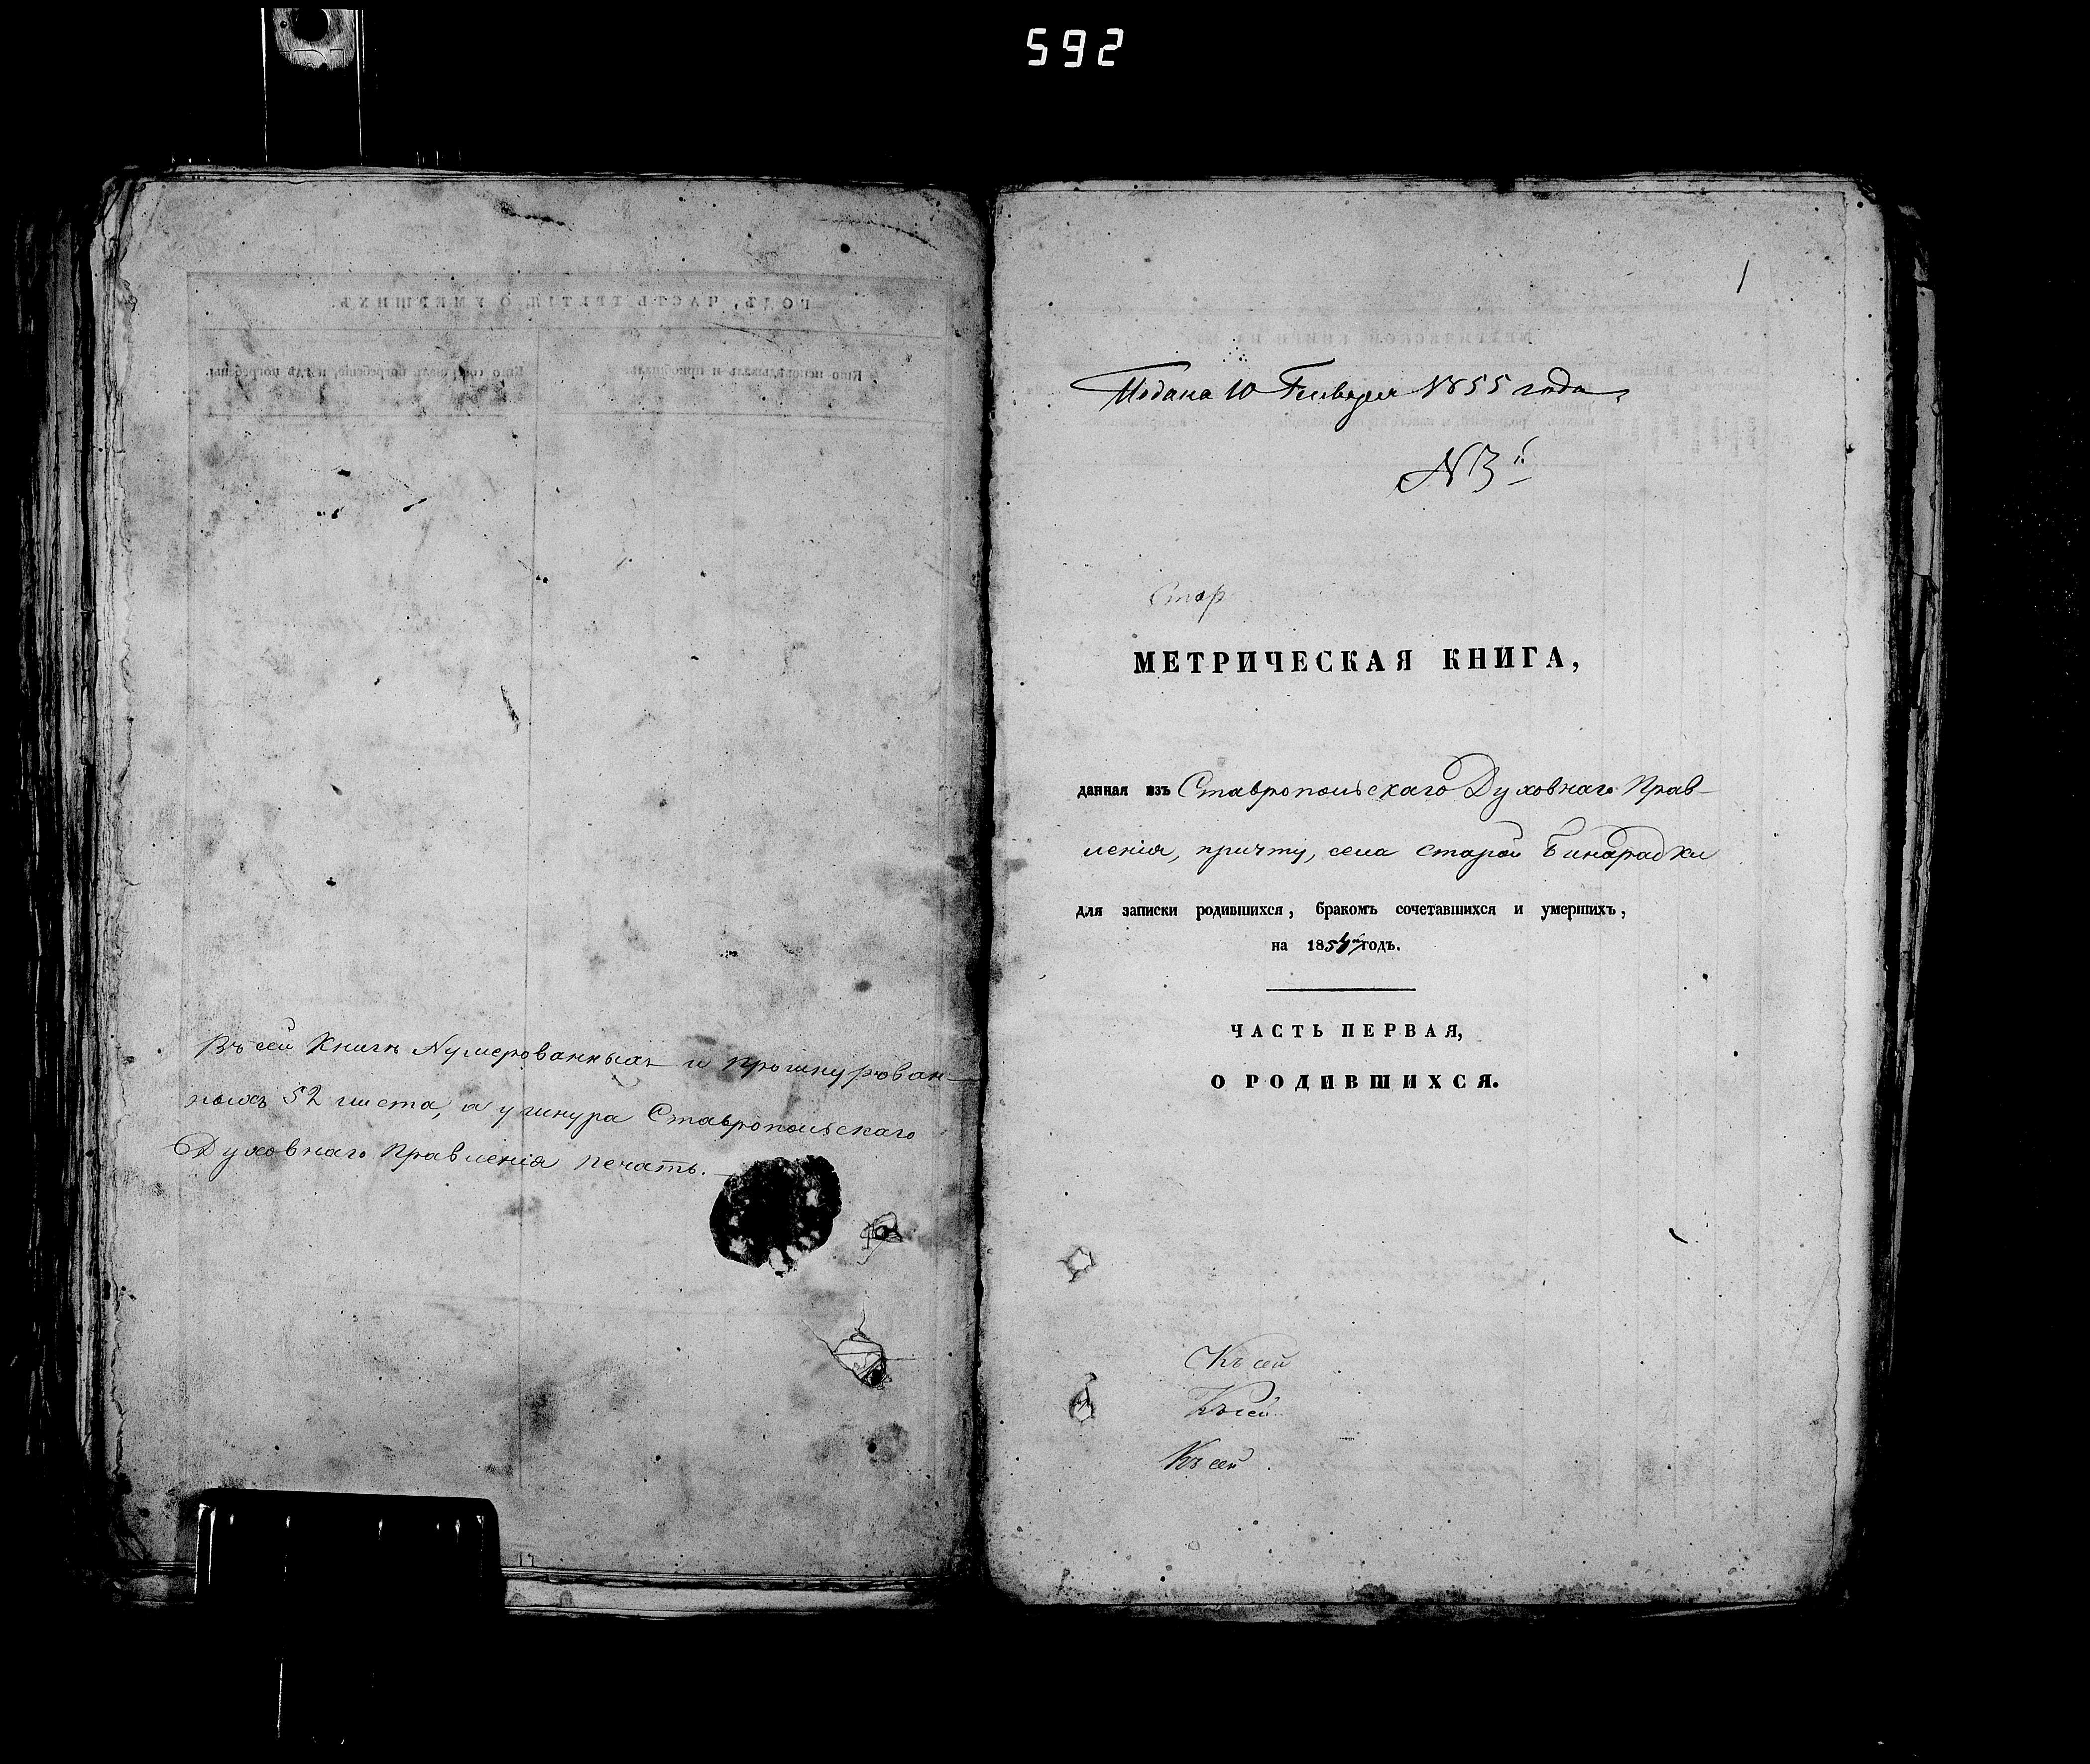 592
Въ сей Книгѣ Нумерованныхъ и прошнурован-
ныхъ 52 листа, а у шнура Ставропольскаго
Духовнаго Правленія печать.
1
Подана 10 Генваря 1855 года.
№ 3й
Стар
МЕТРИЧЕСКАЯ КНИГА,
данная изъ Ставропольскаго Духовнаго Прав-
ленія, причту, села Старой Бинарадки
для записки родившихся, бракомъ сочетавшихся и умершихъ,
на 1854й годъ.
ЧАСТЬ ПЕРВАЯ,
О РОДИВШИХСЯ.
Къ сей
Къ сей
Къ сей